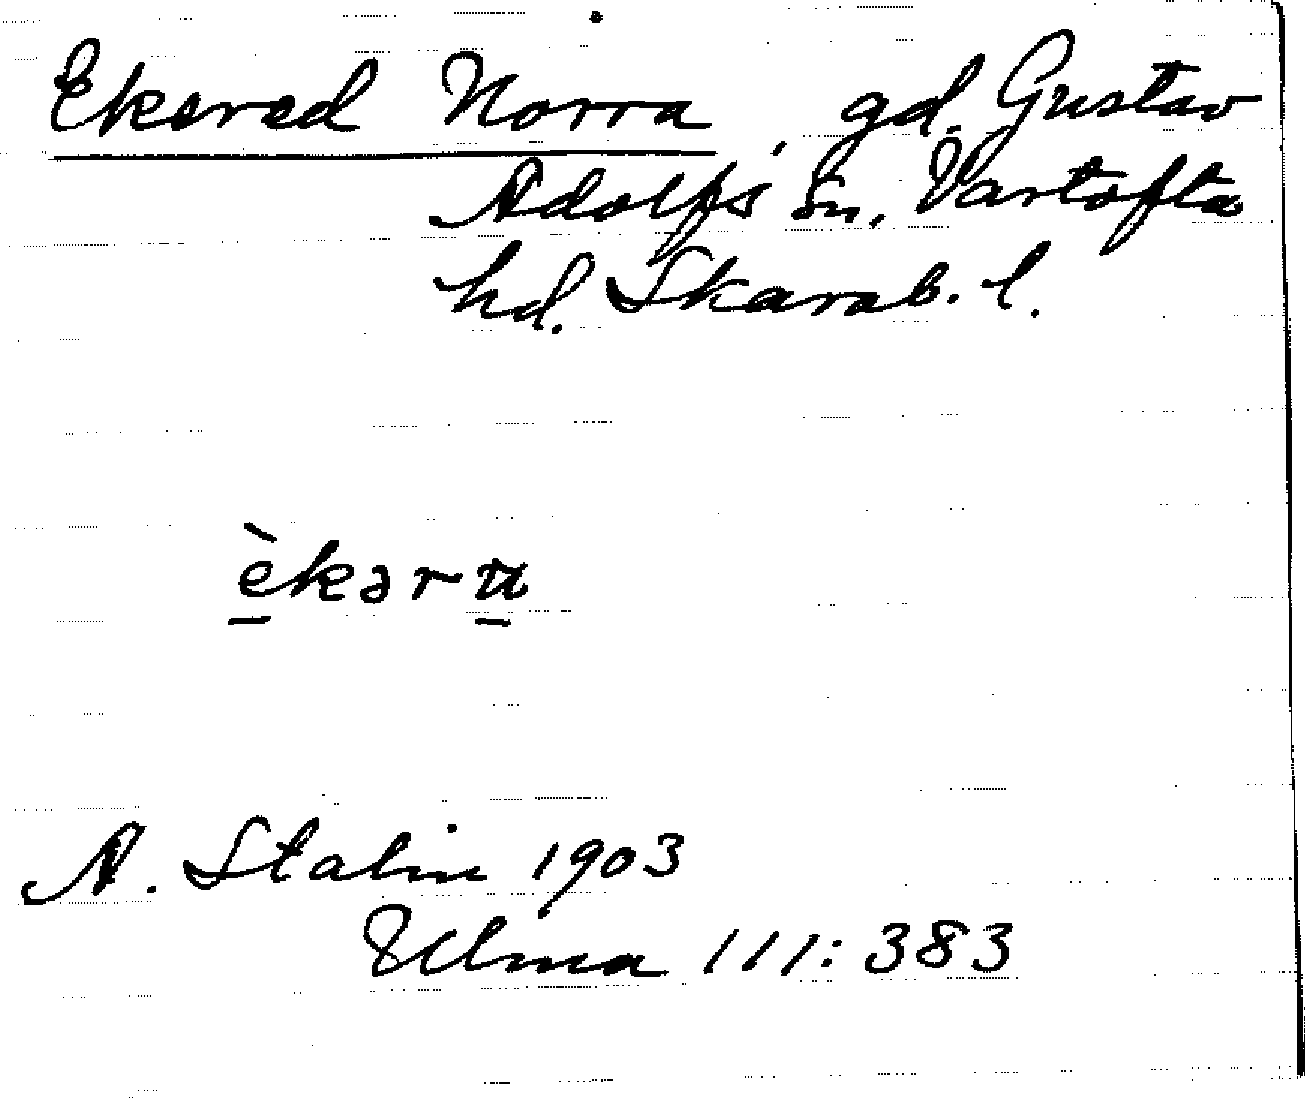 Ekered Norra, gd. Gustav
Adolfs sn, Vartofta
hd. Skarab. l.
èkərn
A. Stalin 1903
Ulma 111:383